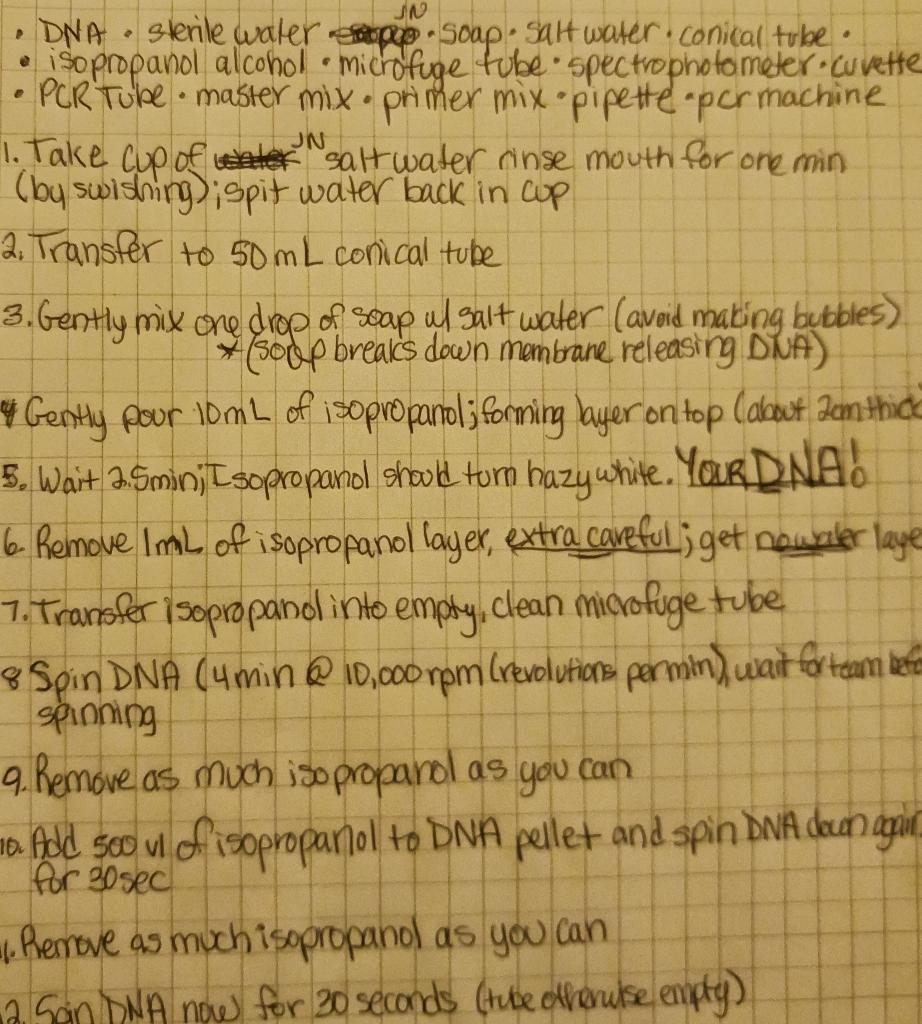 • DNA • sterile water • JN • soap • salt water • conical tube •
• isopropanol alcohol • microfuge tube • spectrophotometer • cuvette
• PCR Tube • master mix • primer mix • pipette • pcr machine
1. Take cup of water JN salt water rinse mouth for one min
(by swishing); spit water back in cup
2. Transfer to 50mL conical tube
3. Gently mix one drop of soap w/ salt water (avoid making bubbles)
*(soap breaks down membrane releasing DNA)
4 Gently pour 10mL of isopropanol; forming layer on top (about 2cm thick
5. Wait 2.5min; Isopropanol should turn hazy white. YOUR DNA!
6. Remove 1mL of isopropanol layer, extra careful; get no water laye
7. Transfer isopropanol into empty, clean microfuge tube
8 Spin DNA (4min @ 10,000rpm (revolutions per min), wait for team befo
spinning
9. Remove as much isopropanol as you can
10. Add 500 ul of isopropanol to DNA pellet and spin DNA down again
for 30sec
1. Remove as much isopropanol as you can
2. Spin DNA now for 30 seconds (tube otherwise empty)